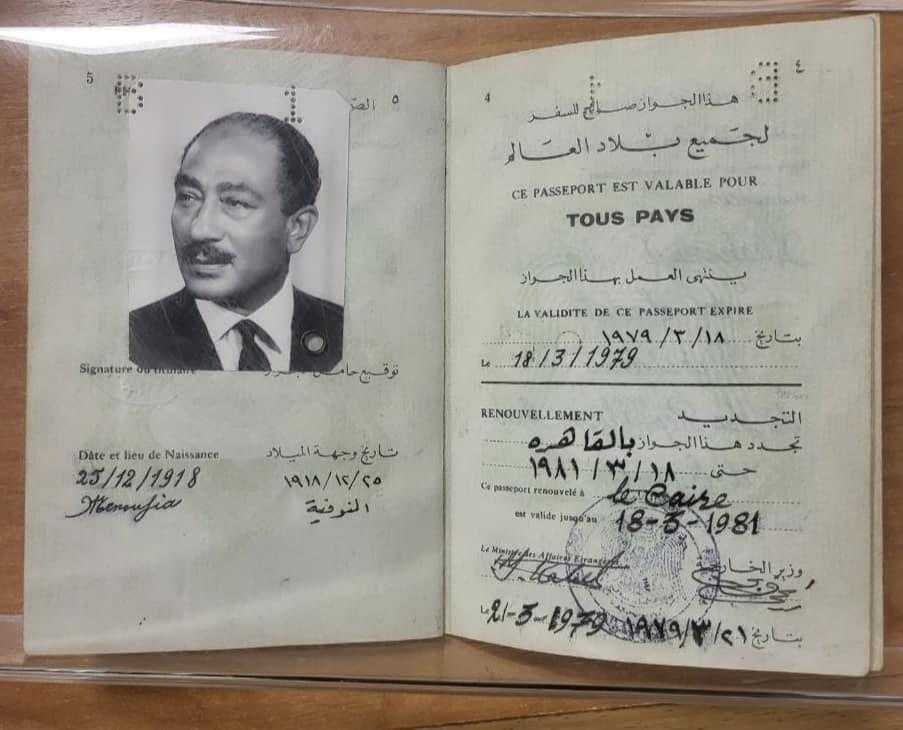 5
٥ الصو
Signature du titulaire
توقيع حامل
Dâte et lieu de Naissance
تاريخ وجهة الميلاد
25/12/1918
١٩١٨/١٢/٢٥
Menoufia
المنوفية
4
٤
هذا الجواز صالح للسفر
لجميع بلاد العالم
CE PASSEPORT EST VALABLE POUR
TOUS PAYS
ينتهى العمل بهذا الجواز
LA VALIDITE DE CE PASSEPORT EXPIRE
بتاريخ ١٩٧٩/٣/١٨
Le 18/3/1979
RENOUVELLEMENT
التجديد
تجدد هذا الجواز بالقاهره
حتى ١٩٨١/٣/١٨
Ce passeport renouvelé à le Caire
est valide jusqu'au 18-3-1981
Le Ministre des Affaires Etrangères
وزير الخارجية
Le 21-3-1979
بتاريخ ١٩٧٩/٣/٢١